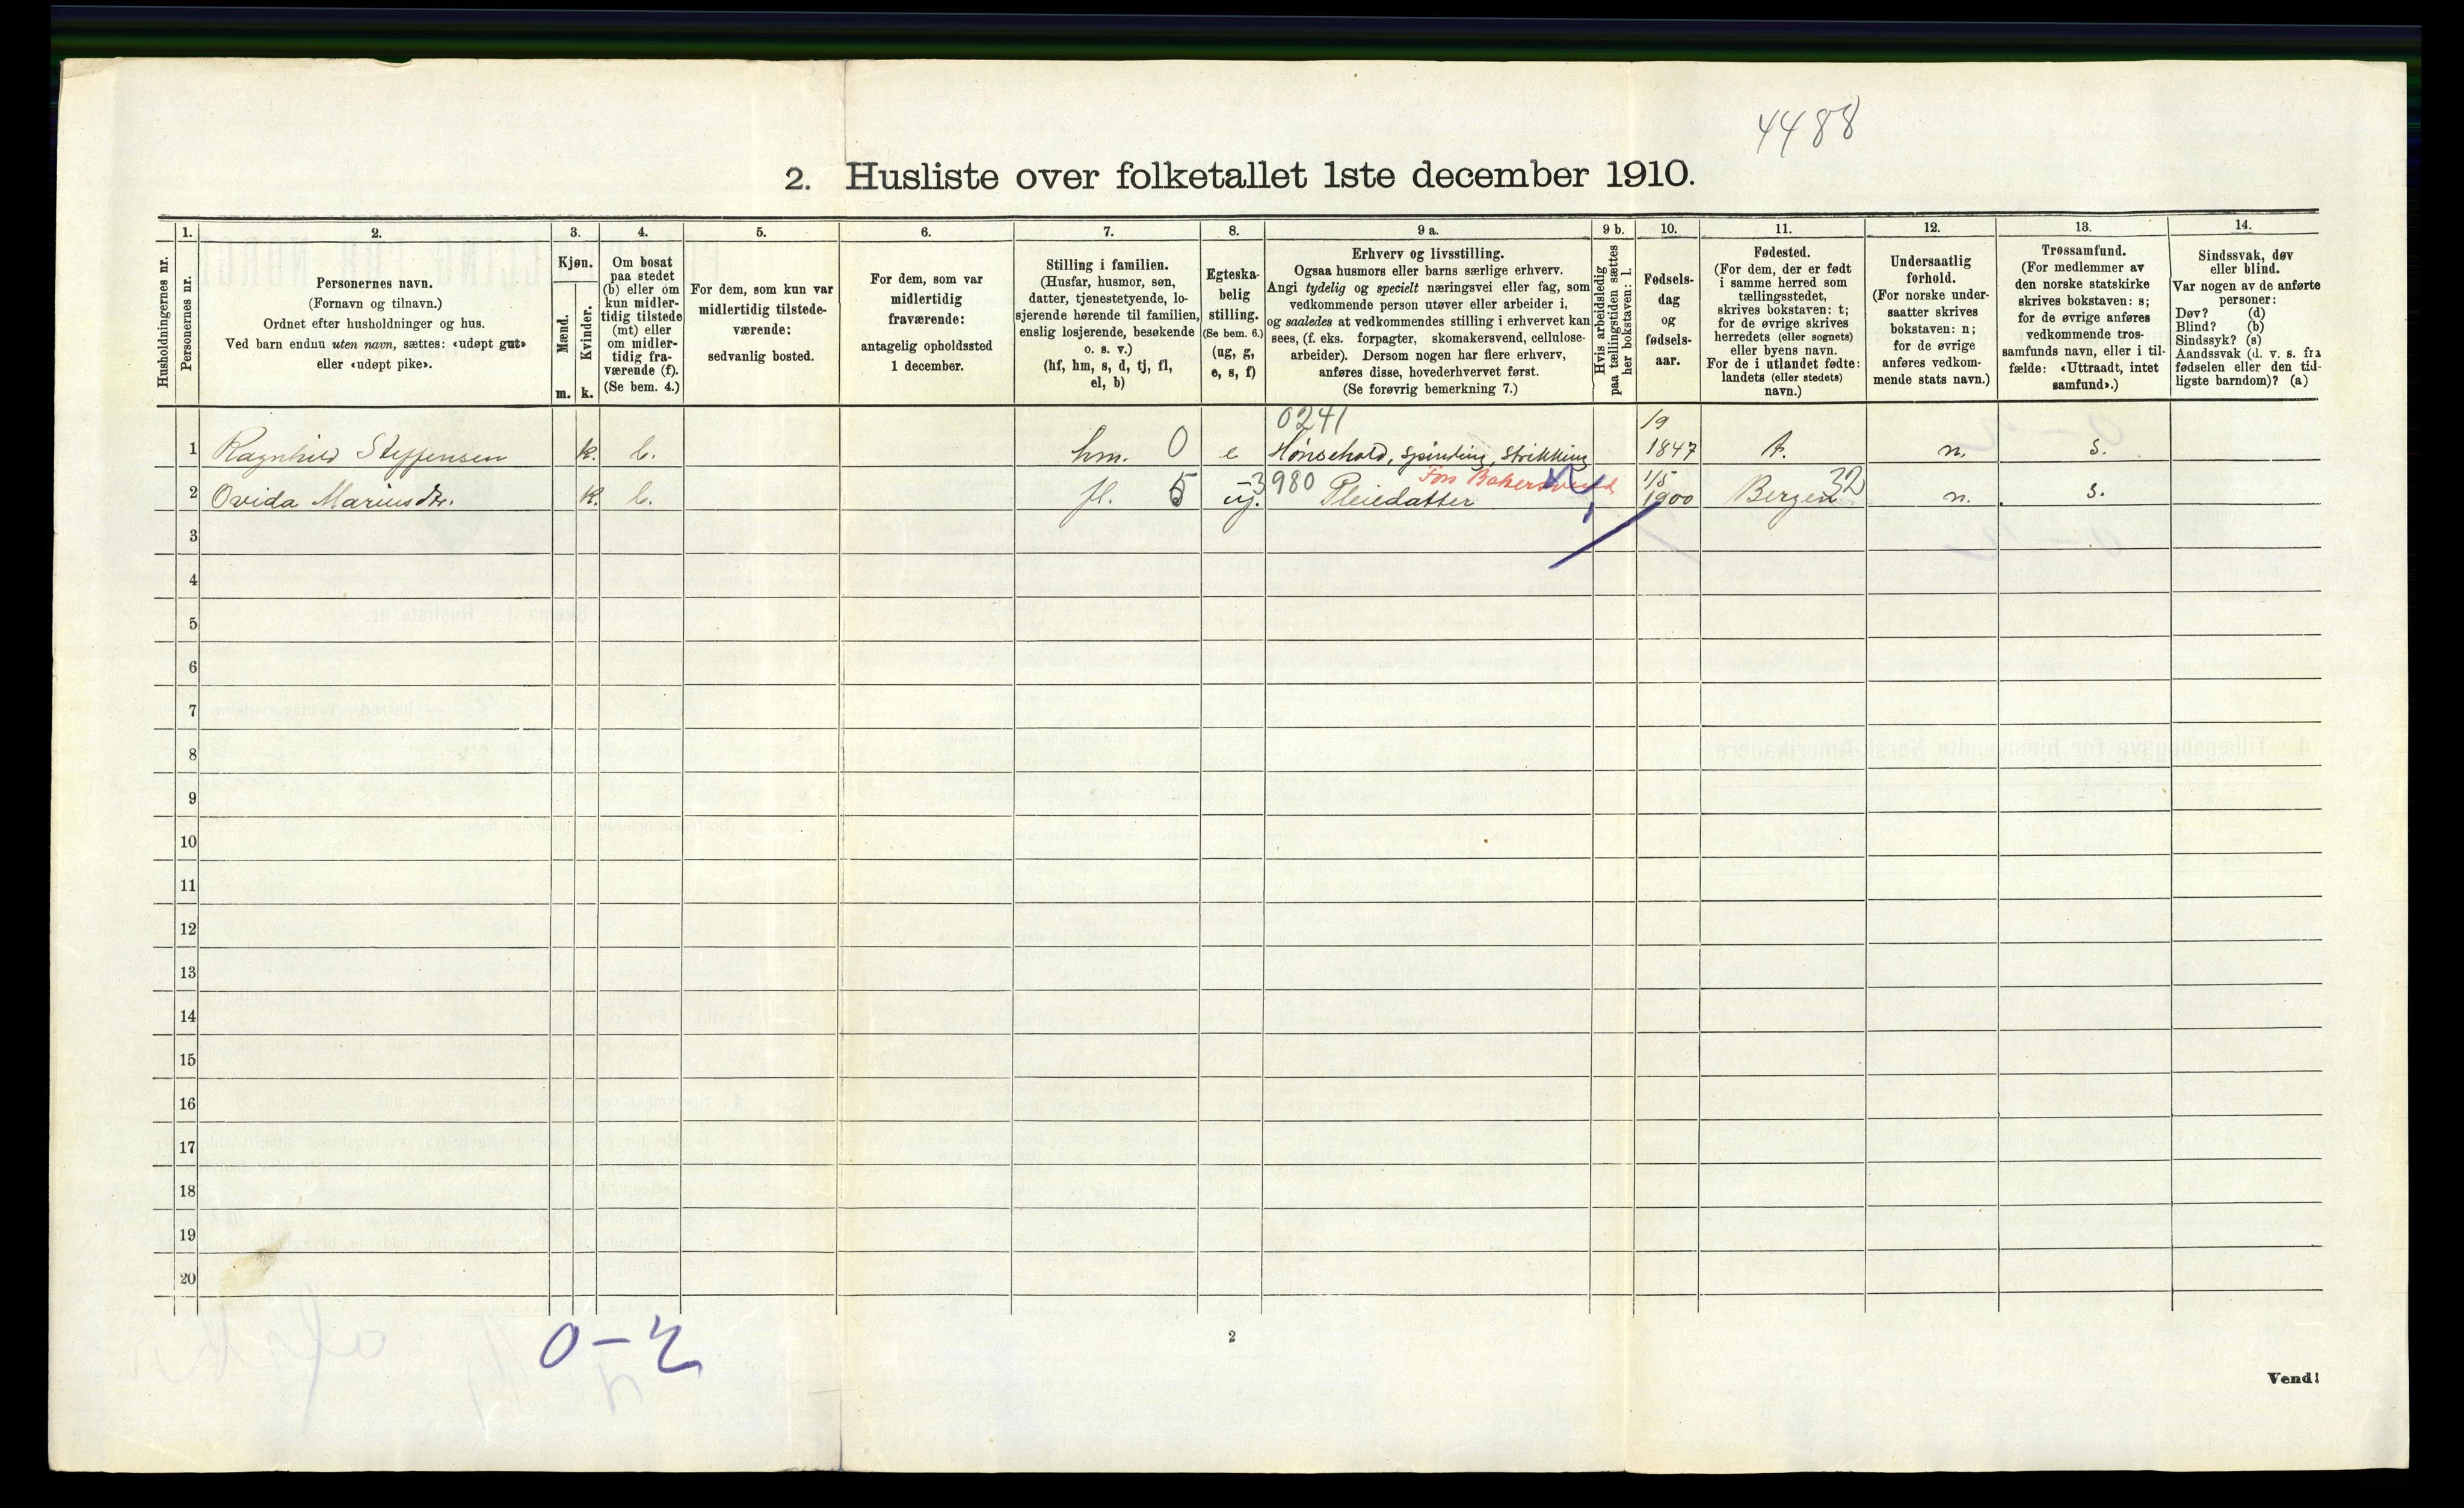 4488
2. Husliste over folketallet 1ste december 1910.
Husholdningernes nr.
1.
Personernes nr.
2.
Personernes navn.
(Fornavn og tilnavn.)
Ordnet efter husholdninger og hus.
Ved barn endnu uten navn, sættes: «udøpt gut»
eller «udøpt pike».
3.
Kjøn.
Mænd.
Kvinder.
m. k.
4.
Om bosat
paa stedet
(b) eller om
kun midler-
tidig tilstede
(mt) eller
om midler-
tidig fra-
værende (f).
(Se bem. 4.)
5.
For dem, som kun var
midlertidig tilstede-
værende:
sedvanlig bosted.
6.
For dem, som var
midlertidig
fraværende:
antagelig opholdssted
1 december.
7.
Stilling i familien.
(Husfar, husmor, søn,
datter, tjenestetyende, lo-
sjerende hørende til familien,
enslig losjerende, besøkende
o. s. v.)
(hf, hm, s, d, tj, fl,
el, b)
8.
Egteska-
belig
stilling.
(Se bem. 6.)
(ug, g,
e, s, f)
9 a.
Erhverv og livsstilling.
Ogsaa husmors eller barns særlige erhverv.
Angi tydelig og specielt næringsvei eller fag, som
vedkommende person utøver eller arbeider i,
og saaledes at vedkommendes stilling i erhvervet kan
sees, (f. eks. forpagter, skomakersvend, cellulose-
arbeider). Dersom nogen har flere erhverv,
anføres disse, hovederhvervet først.
(Se forøvrig bemerkning 7.)
9 b.
Hvis arbeidsledig
paa tællingstiden sættes
her bokstaven: l.
10.
Fødsels-
dag
og
fødsels-
aar.
11.
Fødested.
(For dem, der er født
i samme herred som
tællingsstedet,
skrives bokstaven: t;
for de øvrige skrives
herredets (eller sognets)
eller byens navn.
For de i utlandet fødte:
landets (eller stedets)
navn.)
12.
Undersaatlig
forhold.
(For norske under-
saatter skrives
bokstaven: n;
for de øvrige
anføres vedkom-
mende stats navn.)
13.
Trossamfund.
(For medlemmer av
den norske statskirke
skrives bokstaven: s;
for de øvrige anføres
vedkommende tros-
samfunds navn, eller i til-
fælde: «Uttraadt, intet
samfund».)
14.
Sindssvak, døv
eller blind.
Var nogen av de anførte
personer:
Døv? (d)
Blind? (b)
Sindssyk? (s)
Aandssvak (d. v. s. fra
fødselen eller den tid-
ligste barndom)? (a)
0241 19
1 Ragnhild Steffensen k. b. hm. 0 e Hønsehold, Spinding, Strikking 1847 t. n. s.
3980 Fors 1/5 32
2 Ovida Mariusdtr. k. b. fl. 5 Pleiedatter 1900 Bergen n. s.
3
4
5
6
7
8
9
10
11
12
13
14
15
16
17
18
19
20
0-2
2
Vend!